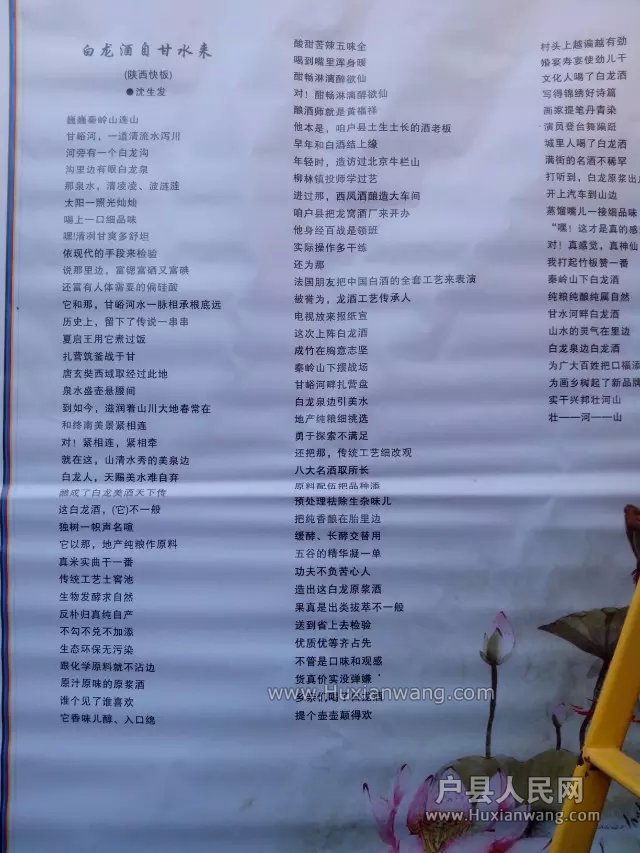 白龙酒自甘水来
(陕西快板)
●沈生发
巍巍秦岭山连山
甘峪河,一道清流水泻川
河旁有一个白龙沟
沟里边有眼白龙泉
那泉水,清凌凌、波涟涟
太阳一照光灿灿
喝上一口细品味
嘿!清冽甘爽多舒坦
依现代的手段来检验
说那里边,富锶富硒又富碘
还富有人体需要的偏硅酸
它和那,甘峪河水一脉相承根底远
历史上,留下了传说一串串
夏启王用它煮过饭
扎营筑釜战于甘
唐玄奘西域取经过此地
泉水盛壶悬腰间
到如今,滋润着山川大地春常在
和终南美景紧相连
对!紧相连,紧相牵
就在这,山清水秀的美泉边
白龙人,天赐美水难自弃
酿成了白龙美酒天下传
这白龙酒,(它)不一般
独树一帜声名喧
它以那,地产纯粮作原料
真米实曲干一番
传统工艺土窖池
生物发酵求自然
反朴归真纯自产
不勾不兑不加添
生态环保无污染
跟化学原料就不沾边
原汁原味的原浆酒
谁个见了谁喜欢
它香味儿醇、入口绵
酸甜苦辣五味全
喝到嘴里浑身暖
甜畅淋漓醉欲仙
对!酣畅淋漓醉欲仙
酿酒师就是黄福祥
他本是,咱户县土生土长的酒老板
早年和白酒结上缘
年轻时,造访过北京牛栏山
柳林镇投师学过艺
进过那,西凤酒酿造大车间
咱户县把龙窝酒厂来开办
他身经百战是领班
实际操作多干练
还为那
法国朋友把中国白酒的全套工艺来表演
被誉为,龙酒工艺传承人
电视放来报纸宣
这次上阵白龙酒
成竹在胸意志坚
秦岭山下摆战场
甘峪河畔扎营盘
白龙泉边引美水
地产纯粮细挑选
勇于探索不满足
还把那,传统工艺细改观
八大名酒取所长
原料配伍把品种添
预处理祛除生杂味儿
把纯香酿在胎里边
缓酵、长酵交替用
五谷的精华凝一单
功夫不负苦心人
造出这白龙原浆酒
果真是出类拔萃不一般
送到省上去检验
优质优等齐占先
不管是口味和观感
货真价实没弹嫌
乡亲们喝了白龙酒
提个壶壶颠得欢
村头上越谝越有劲
婚宴寿宴使劲儿干
文化人喝了白龙酒
写得锦绣好诗篇
画家提笔丹青染
演员登台舞蹁跹
城里人喝了白龙酒
满街的名酒不稀罕
打听到,白龙原浆出
开上汽车到山边
蒸馏嘴儿一接细品味
“嘿!这才是真的感
对!真感觉,真神仙
我打起竹板赞一番
秦岭山下白龙酒
纯粮纯酿纯属自然
甘水河畔白龙酒
山水的灵气在里边
白龙泉边白龙酒
为广大百姓把口福添
为画乡树起了新品牌
实干兴邦壮河山
壮——河——山
www.Huxianwang.com
户县人民网
www.Huxianwang.com